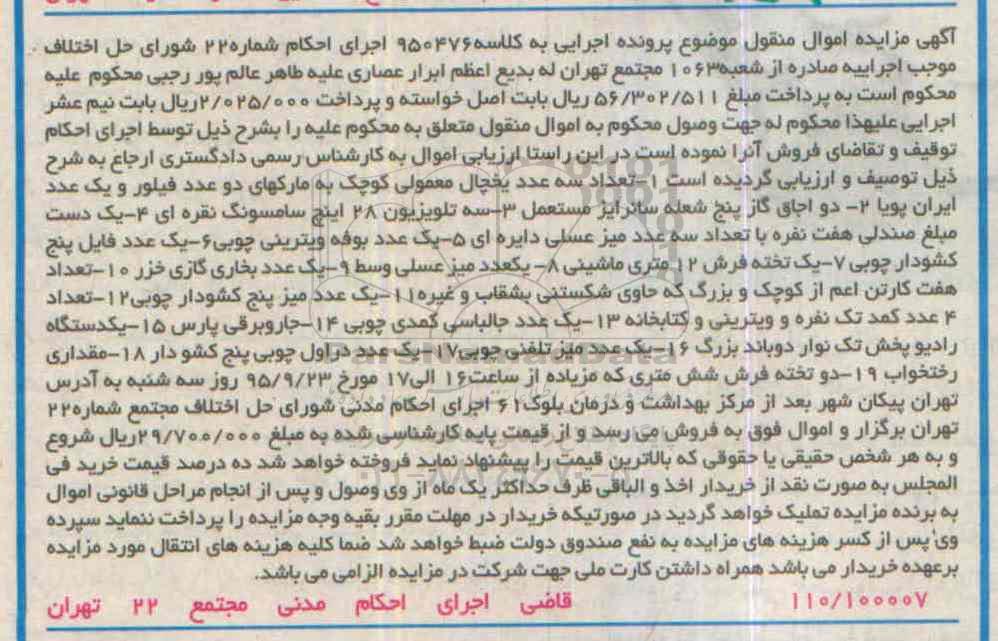 آگهی مزایده اموال منقول موضوع پرونده اجرایی به کلاسه۹۵۰۴۷۶ اجرای احکام شماره۲۲ شورای حل اختلاف
موجب اجراییه صادره از شعبه۱۰۶۳ مجتمع تهران له بدیع اعظم ابرار عصاری علیه طاهر عالم پور رجبی محکوم علیه
محکوم است به پرداخت مبلغ ۵۶/۳۰۲/۵۱۱ ریال بابت اصل خواسته و پرداخت ۲/۰۲۵/۰۰۰ریال بابت نیم عشر
اجرایی علیهذا محکوم له جهت وصول محکوم به اموال منقول متعلق به محکوم علیه را بشرح ذیل توسط اجرای احکام
توقیف و تقاضای فروش آنرا نموده است در این راستا ارزیابی اموال به کارشناس رسمی دادگستری ارجاع به شرح
ذیل توصیف و ارزیابی گردیده است ۱-تعداد سه عدد یخچال معمولی کوچک به مارکهای دو عدد فیلور و یک عدد
ایران پویا ۲- دو اجاق گاز پنج شعله سانرایز مستعمل ۳-سه تلویزیون ۲۸ اینچ سامسونگ نقره ای ۴-یک دست
مبلغ صندلی هفت نفره با تعداد سه عدد میز عسلی دایره ای ۵-یک عدد بوفه ویترینی چوبی۶-یک عدد فایل پنج
کشودار چوبی ۷-یک تخته فرش ۱۲ متری ماشینی ۸- یکعدد میز عسلی وسط ۹-یک عدد بخاری گازی خزر ۱۰-تعداد
هفت کارتن اعم از کوچک و بزرگ که حاوی شکستنی بشقاب و غیره۱۱-یک عدد میز پنج کشودار چوبی۱۲-تعداد
۴ عدد کمد تک نفره و ویترینی و کتابخانه ۱۳-یک عدد جالباسی کمدی چوبی ۱۴-جاروبرقی پارس ۱۵-یکدستگاه
رادیو پخش تک نوار دوباند بزرگ ۱۶-یک عدد میز تلفنی چوبی۱۷-یک عدد دراول چوبی پنج کشو دار ۱۸-مقداری
رختخواب ۱۹-دو تخته فرش شش متری که مزیاده از ساعت۱۶ الی۱۷ مورخ ۹۵/۹/۲۳ روز سه شنبه به آدرس
تهران پیکان شهر بعد از مرکز بهداشت و درمان بلوک۶۱ اجرای احکام مدنی شورای حل اختلاف مجتمع شماره۲۲
تهران برگزار و اموال فوق به فروش می رسد و از قیمت پایه کارشناسی شده به مبلغ ۲۹/۷۰۰/۰۰۰ریال شروع
و به هر شخص حقیقی یا حقوقی که بالاترین قیمت را پیشنهاد نماید فروخته خواهد شد ده درصد قیمت خرید فی
المجلس به صورت نقد از خریدار اخذ و الباقی ظرف حداکثر یک ماه از وی وصول و پس از انجام مراحل قانونی اموال
به برنده مزایده تملیک خواهد گردید در صورتیکه خریدار در مهلت مقرر بقیه وجه مزایده را پرداخت ننماید سپرده
وی پس از کسر هزینه های مزایده به نفع صندوق دولت ضبط خواهد شد ضما کلیه هزینه های انتقال مورد مزایده
برعهده خریدار می باشد همراه داشتن کارت ملی جهت شرکت در مزایده الزامی می باشد.
۱۱۰/۱۰۰۰۰۷ قاضی اجرای احکام مدنی مجتمع ۲۲ تهران